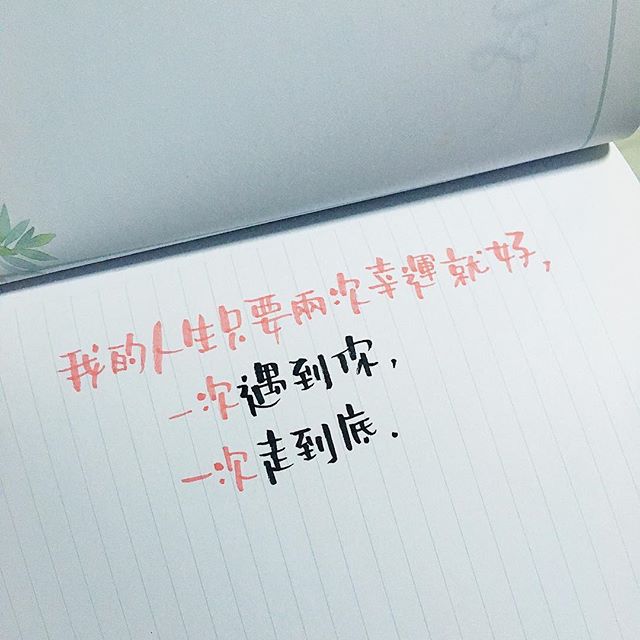 我的人生只要兩次幸運就好，
一次遇到你，
一次走到底．